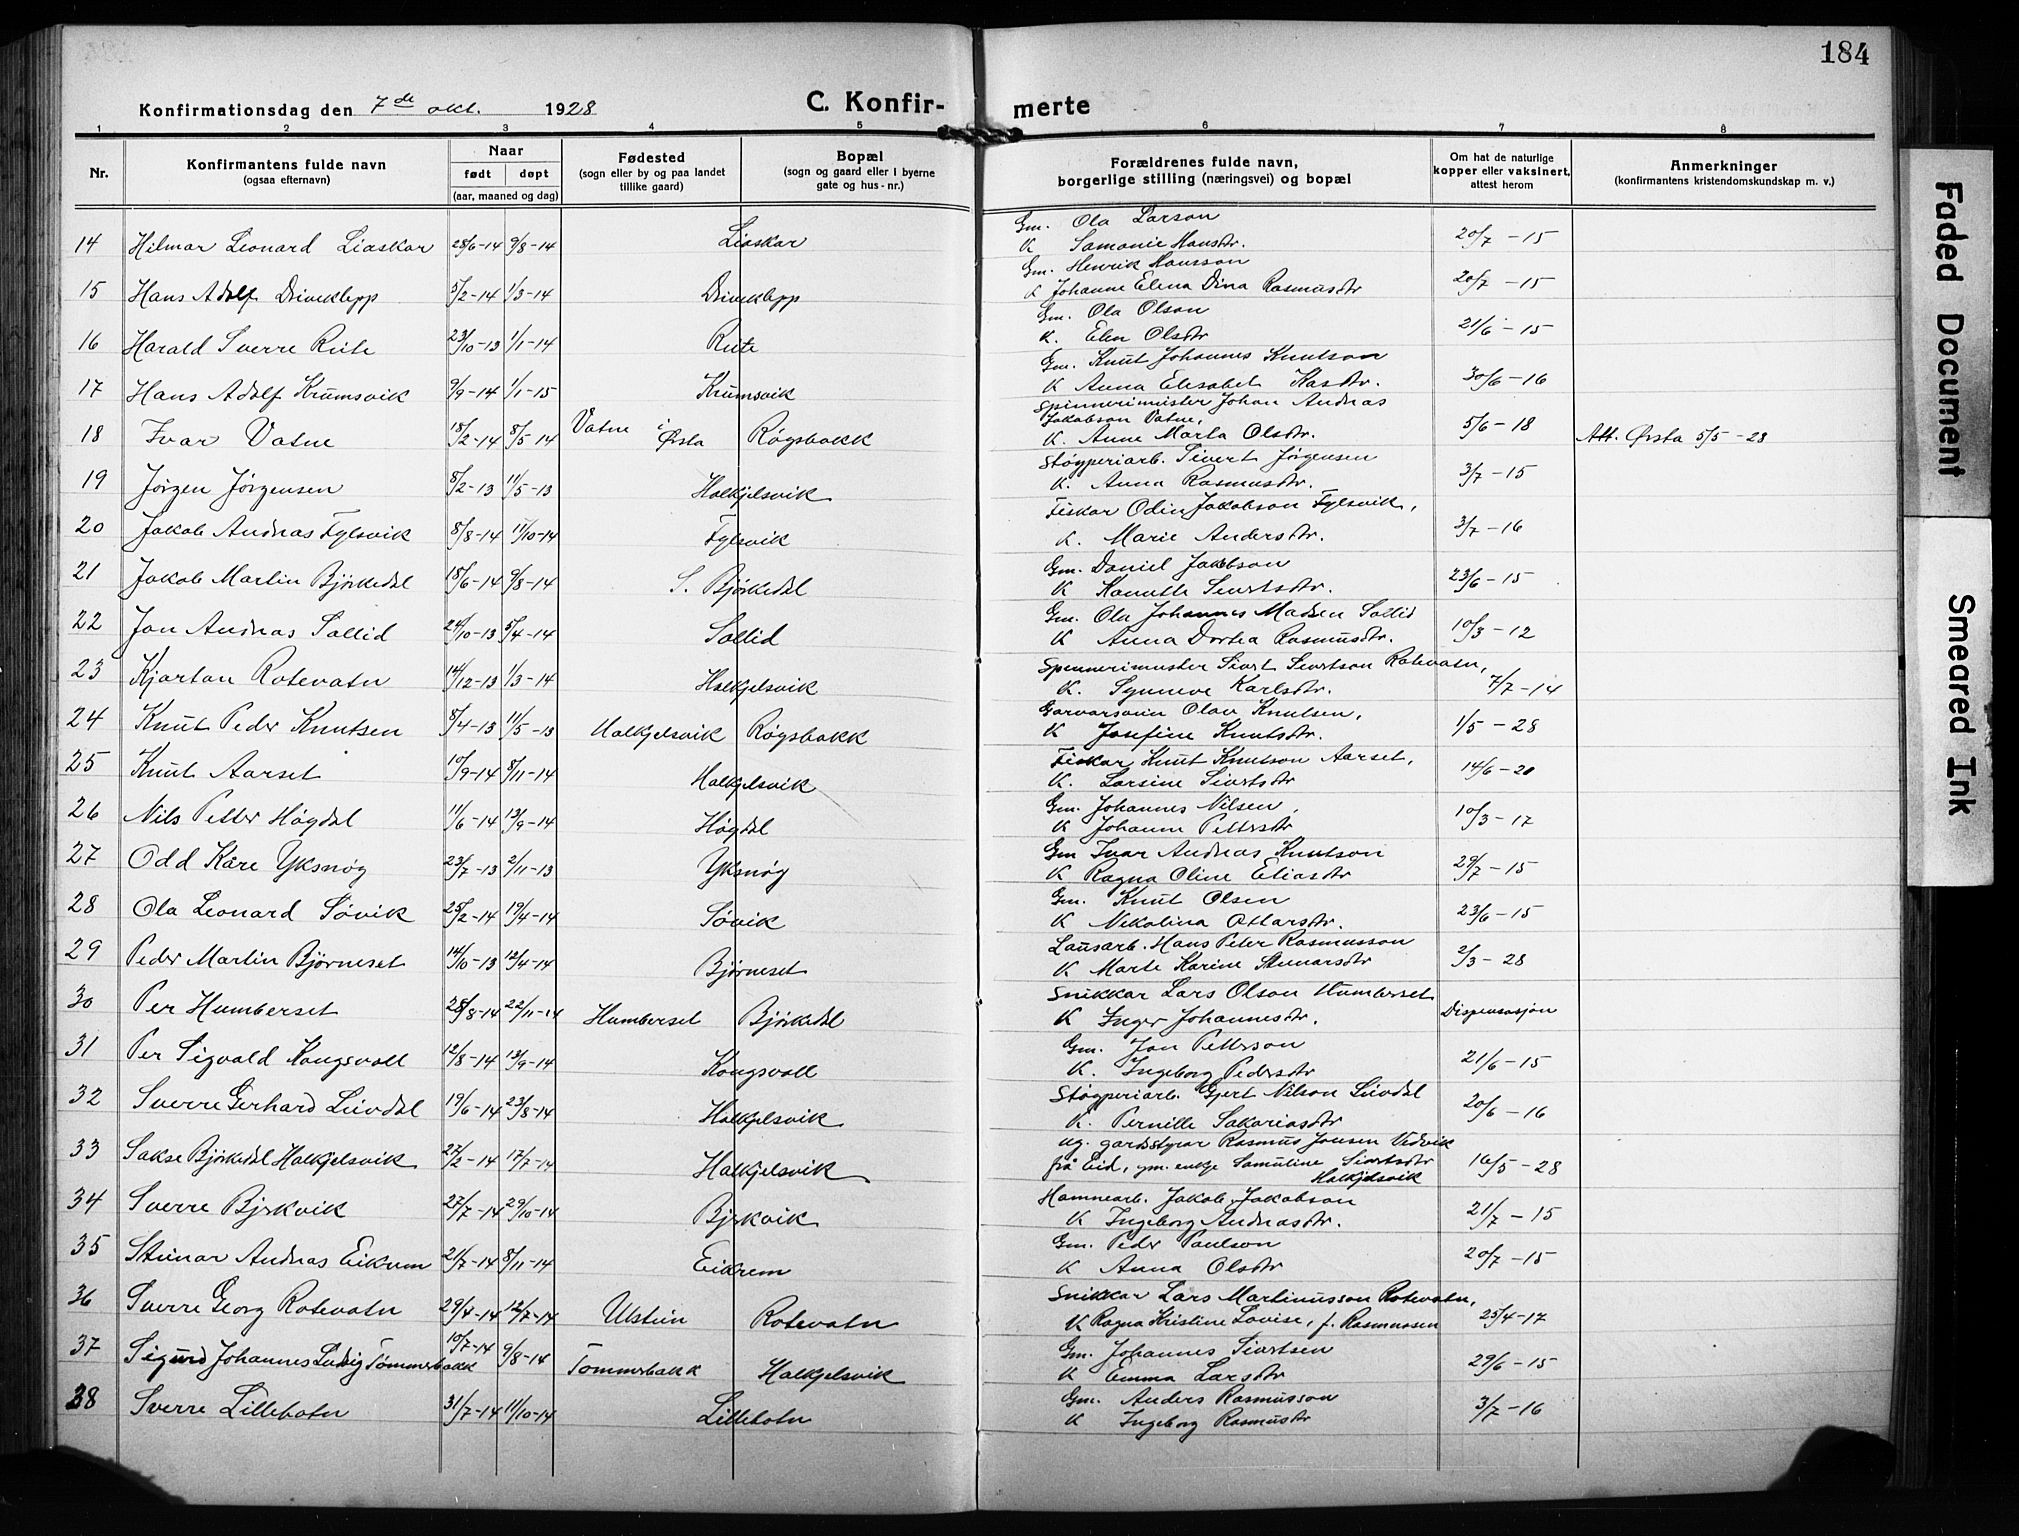 184
Konfirmationsdag den 7de okt. 1928
C. Konfir- merte
1 2 3 4 5 6 7 8
Nr.
Konfirmantens fulde navn
(ogsaa efternavn)
Naar
født døpt
(aar, maaned og dag)
Fødested
(sogn eller by og paa landet
tillike gaard)
Bopæl
(sogn og gaard eller i byerne
gate og hus-nr.)
Forældrenes fulde navn,
borgerlige stilling (næringsvei) og bopæl
Om hat de naturlige
kopper eller vaksinert,
attest herom
Anmerkninger
(konfirmantens kristendomskundskap m. v.)
Gm. Ola Larson
14 Hilmar Leonard Liaskar 28/6-14 9/8-14 Liaskar K Samanie Hansdtr. 20/7-15
Gm. Henrik Hansson
15 Hans Adolf Driveklepp 5/2-14 1/3-14 Driveklepp K Johanne Elena Dina Rasmusdtr 20/7-15
Gm. Ola Olson
16 Harald Sverre Rute 23/10-13 1/1-14 Rute K. Elen Olsdtr 21/6-15
Gm. Knut Johannes Knutson
17 Hans Adolf Krumsvik 9/9-14 1/1-15 Krumsvik K Anna Elisabet Kasdtr. 30/6-16
Spinnerimeister Johan Andreas
Jakobson Vatne,
18 Ivar Vatne 18/2-14 8/5-14 Vatne i Ørsta Røgsbakk K. Anne Marta Olsdtr. 5/6-18 Att. Ørsta 5/5-28
Støyperiarb. Sivert Jørgensen
19 Jørgen Jørgensen 8/2-13 11/5-13 Halkjelsvik K. Anna Rasmusdtr. 3/7-15
Fiskar Odin Jakobson Fylsvik,
20 Jakob Andreas Fylsvik 8/8-14 11/10-14 Fylsvik K. Marie Andersdtr. 3/7-16
Gm. Daniel Jakobson
21 Jakob Martin Bjørkedal 18/6-14 9/8-14 S. Bjørkedal K Kanutte Sivertsdtr. 23/6-15
Gm. Ola Johannes Madsen Sollid
22 Jon Andreas Sollid 24/10-13 5/4-14 Sollid K Anna Dortea Rasmusdtr. 10/3-12
Spinnerimeister Sivert Sivertson Rotevatn,
23 Kjartan Rotevatn 14/12-13 1/3-14 Halkjelsvik K. Synneve Karlsdtr. 7/7-14
Garvarsvein Olav Knutsen,
24 Knut Peder Knutsen 8/4-13 11/5-13 Halkjelsvik Røgsbakk K Josefine Knutsdtr. 1/5-28
Fiskar Knut Knutson Aarset,
25 Knut Aarset 10/9-14 8/11-14 Halkjelsvik K. Larsine Sivertsdtr 14/6-20
Gm. Johannes Nilsen,
26 Nils Petter Høgdal 11/6-14 13/9-14 Høgdal K Johanne Pettersdtr 10/3-17
Gm Ivar Andreas Knutson
27 Odd Kåre Yksnøy 23/7-13 2/11-13 Yksnøy K Ragna Oline Eliasdtr 29/7-15
Gm. Knut Olsen
28 Ola Leonard Søvik 25/2-14 19/4-14 Søvik K Nikolina Ottarsdtr. 23/6-15
Lausarb. Hans Peter Rasmusson
29 Peder Martin Bjørneset 14/10-13 12/4-14 Bjørneset K Marte Karine Steinarsdtr 2/3-28
Snikkar Lars Olson Humberset
30 Per Humberset 28/8-14 22/11-14 Humberset Bjørkedal K Inger Johannesdtr. Dispensasjon
Gm. Jon Petterson
31 Per Sigvald Kongsvoll 12/8-14 13/9-14 Kongsvoll K. Ingeborg Pedersdtr 21/6-15
Støyperiarb. Gjert Nilson Leivdal
32 Sverre Gerhard Leivdal 19/6-14 23/8-14 Halkjelsvik K. Pernille Sakariasdtr 20/6-16
Ug. gardsstyrar Rasmus Jonsen Vedvik
33 Sakse Bjørkedal Halkjelsvik 27/2-14 17/7-14 Halkjelsvik frå Eid, gm. enkje Samuline Sivertsdtr 16/5-28
Halkjelsvik
Hamnearb. Jakob Jakobson
34 Sverre Bjrkvik 27/7-14 29/10-14 Bjrkvik K Ingeborg Andreasdtr. 21/7-15
Gm. Peder Paulson
35 Steinar Andreas Eikrem 21/7-14 8/11-14 Eikrem K Anna Olsdtr 20/7-15
Snikkar Lars Martinusson Rotevatn,
36 Sverre Georg Rotevatn 29/4-14 12/7-14 Ulstein Rotevatn K Ragna Kristine Lovise, f. Rasmussen 25/4-17
Gm. Johannes Sivertsen
37 Sigurd Johannes Ludvig Tømmerbakk 10/7-14 9/8-14 Tømmerbakk Halkjelsvik K Emma Larsdtr 29/6-15
Gm. Anders Rasmusson
38 Sverre Lillebotn 31/7-14 11/10-14 Lillebotn K Ingeborg Rasmusdtr 3/7-16
Faded Document
Smeared Ink